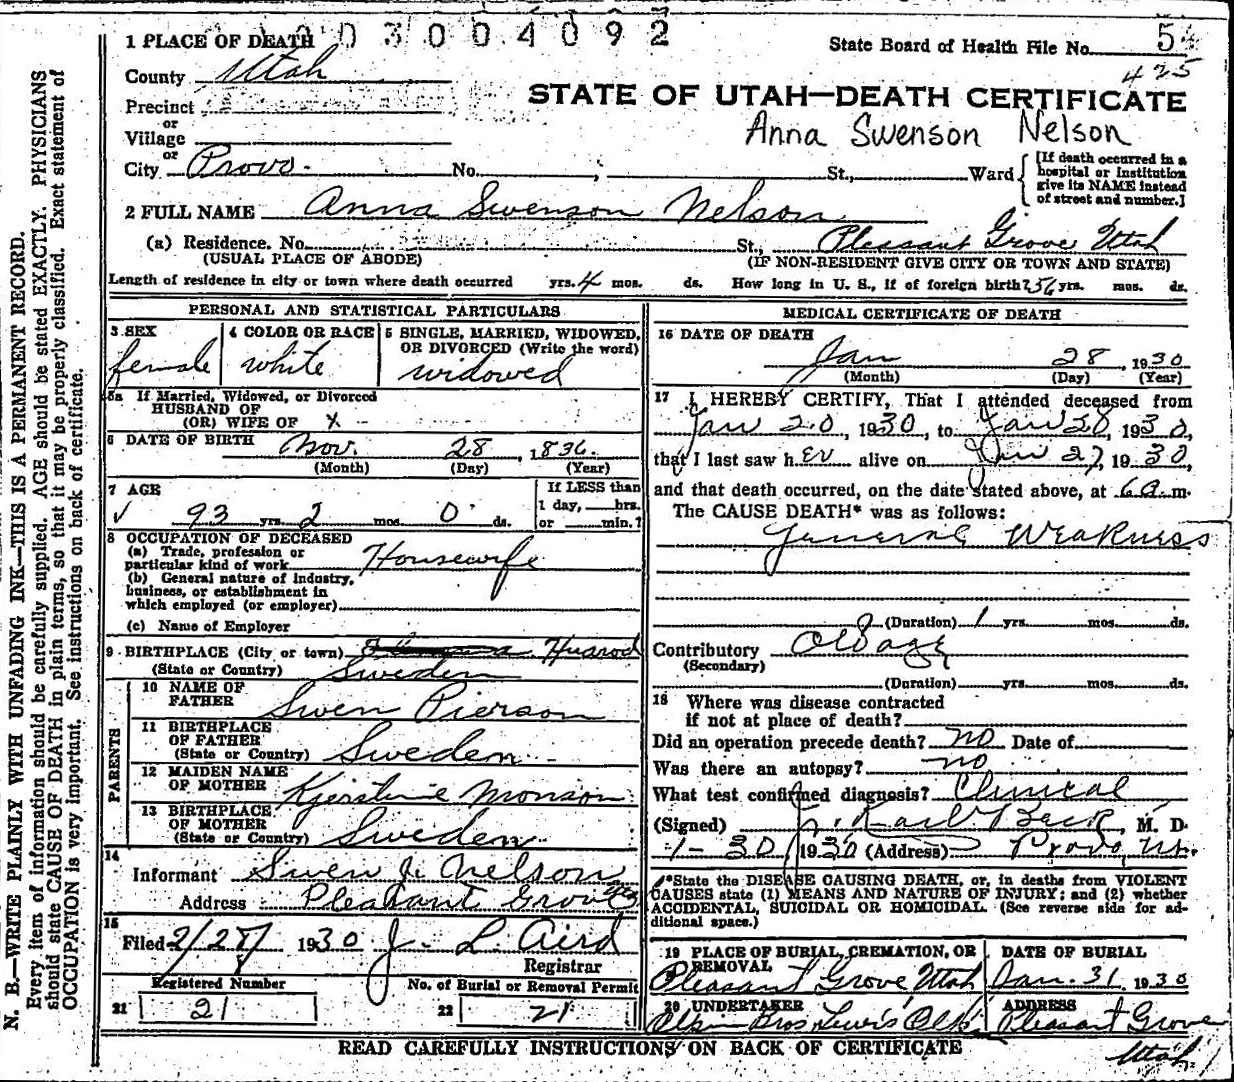 2 0 3 0 0 4 0 9 2
State Board of Health File No. 54
425
STATE OF UTAH—DEATH CERTIFICATE
Anna Swenson Nelson
1 PLACE OF DEATH
County Utah
Precinct
or
Village
or
City Provo. No. St., Ward
[If death occurred in a hospital or institution give its NAME instead of street and number.]
2 FULL NAME Anna Swenson Nelson
(a) Residence. No. St., Pleasant Grove Utah
(USUAL PLACE OF ABODE) (IF NON-RESIDENT GIVE CITY OR TOWN AND STATE)
Length of residence in city or town where death occurred yrs. 4 mos. ds. How long in U. S., if of foreign birth? 56 yrs. mos. ds.
PERSONAL AND STATISTICAL PARTICULARS
3 SEX
female
4 COLOR OR RACE
white
5 SINGLE, MARRIED, WIDOWED, OR DIVORCED (Write the word)
widowed
5a If Married, Widowed, or Divorced
HUSBAND OF
(OR) WIFE OF X -
6 DATE OF BIRTH Nov. 28, 1836
(Month) (Day) (Year)
7 AGE
93 yrs. 2 mos. 0 ds.
If LESS than
1 day, hrs.
or min.?
8 OCCUPATION OF DECEASED
(a) Trade, profession or
particular kind of work Housewife
(b) General nature of industry,
business, or establishment in
which employed (or employer)
(c) Name of Employer
9 BIRTHPLACE (City or town) Huarod
(State or Country) Sweden
PARENTS
10 NAME OF
FATHER Swen Pierson
11 BIRTHPLACE
OF FATHER
(State or Country) Sweden
12 MAIDEN NAME
OF MOTHER Kjerstine Monson
13 BIRTHPLACE
OF MOTHER
(State or Country) Sweden
14
Informant Swen J. Nelson
Address Pleasant Grove
15
Filed 2/28/ 1930 J. L. Aird
Registrar
Registered Number
21 21
No. of Burial or Removal Permit
22 21
MEDICAL CERTIFICATE OF DEATH
16 DATE OF DEATH
Jan 28, 1930
(Month) (Day) (Year)
17 I HEREBY CERTIFY, That I attended deceased from
Jan 20, 1930, to Jan 28, 1930,
that I last saw her alive on Jan 27, 1930,
and that death occurred, on the date stated above, at 6 a.m.
The CAUSE DEATH* was as follows:
General Weakness
(Duration) 1 yrs. mos. ds.
Contributory Old age
(Secondary)
(Duration) yrs. mos. ds.
18 Where was disease contracted
if not at place of death?
Did an operation precede death? no Date of
Was there an autopsy? no
What test confirmed diagnosis? Clinical
(Signed) J. Karl Beck, M. D.
1-30 1930 (Address) Provo, Ut.
*State the DISEASE CAUSING DEATH, or, in deaths from VIOLENT
CAUSES state (1) MEANS AND NATURE OF INJURY; and (2) whether
ACCIDENTAL, SUICIDAL OR HOMICIDAL. (See reverse side for ad-
ditional space.)
19 PLACE OF BURIAL, CREMATION, OR
REMOVAL
Pleasant Grove Utah
DATE OF BURIAL
Jan. 31 1930
20 UNDERTAKER
Olpin Bros
ADDRESS
Pleasant Grove
Utah
READ CAREFULLY INSTRUCTIONS ON BACK OF CERTIFICATE
N. B.—WRITE PLAINLY WITH UNFADING INK—THIS IS A PERMANENT RECORD.
Every item of information should be carefully supplied. AGE should be stated EXACTLY. PHYSICIANS
should state CAUSE OF DEATH in plain terms, so that it may be properly classified. Exact statement of
OCCUPATION is very important. See instructions on back of certificate.